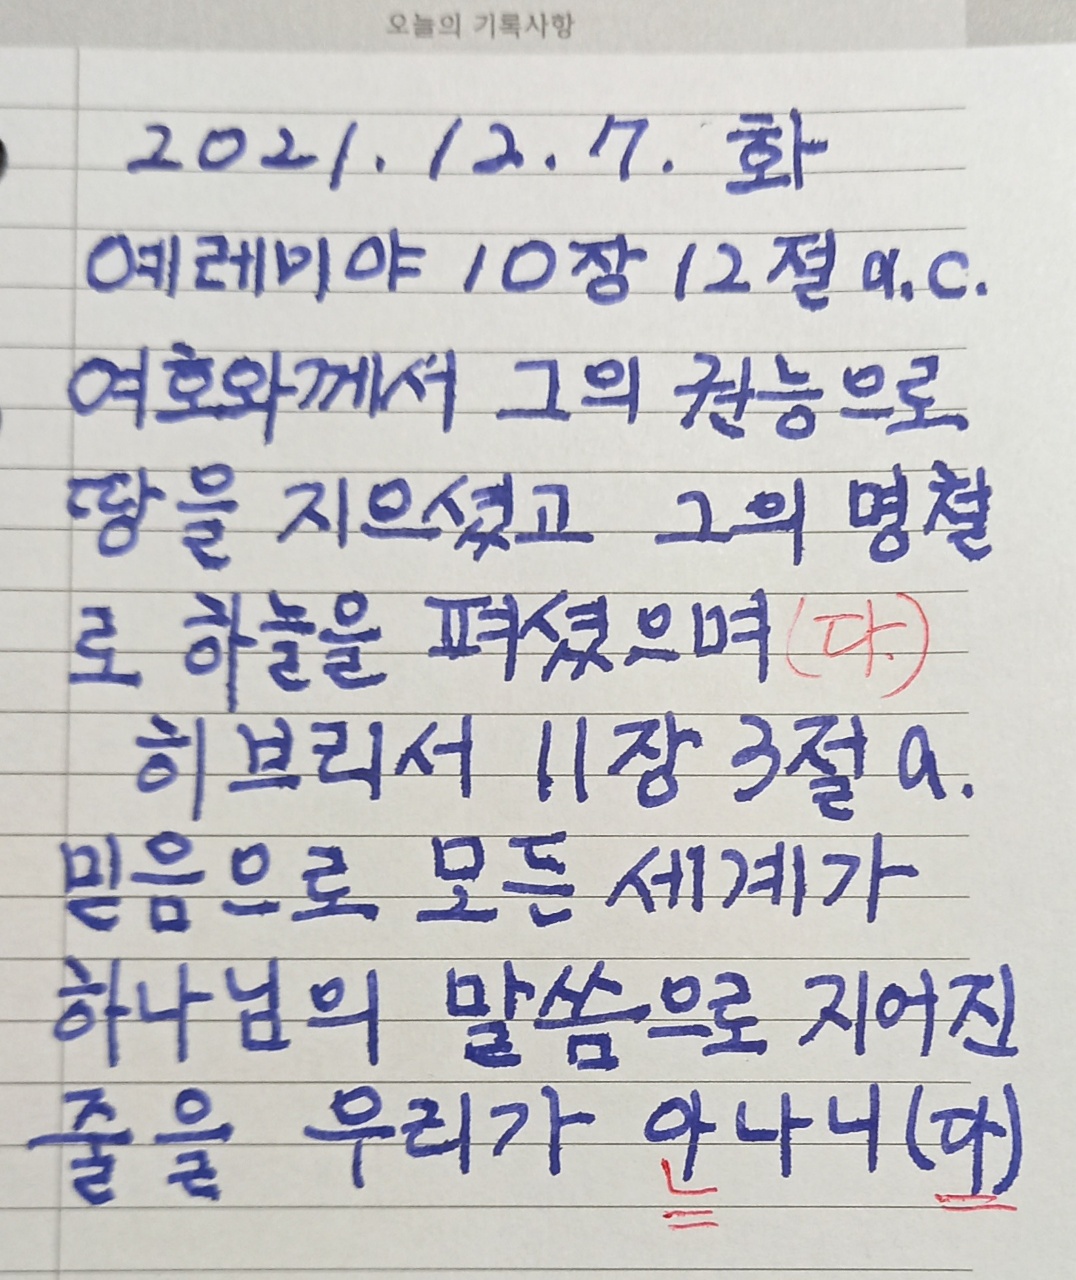 오늘의 기록사항
2021. 12. 7. 화
예레미야 10장 12절 a.c.
여호와께서 그의 권능으로
땅을 지으셨고 그의 명철
로 하늘을 펴셨으며(다.)
히브리서 11장 3절 a.
믿음으로 모든 세계가
하나님의 말씀으로 지어진
줄을 우리가 아나니(다)
ㄴ